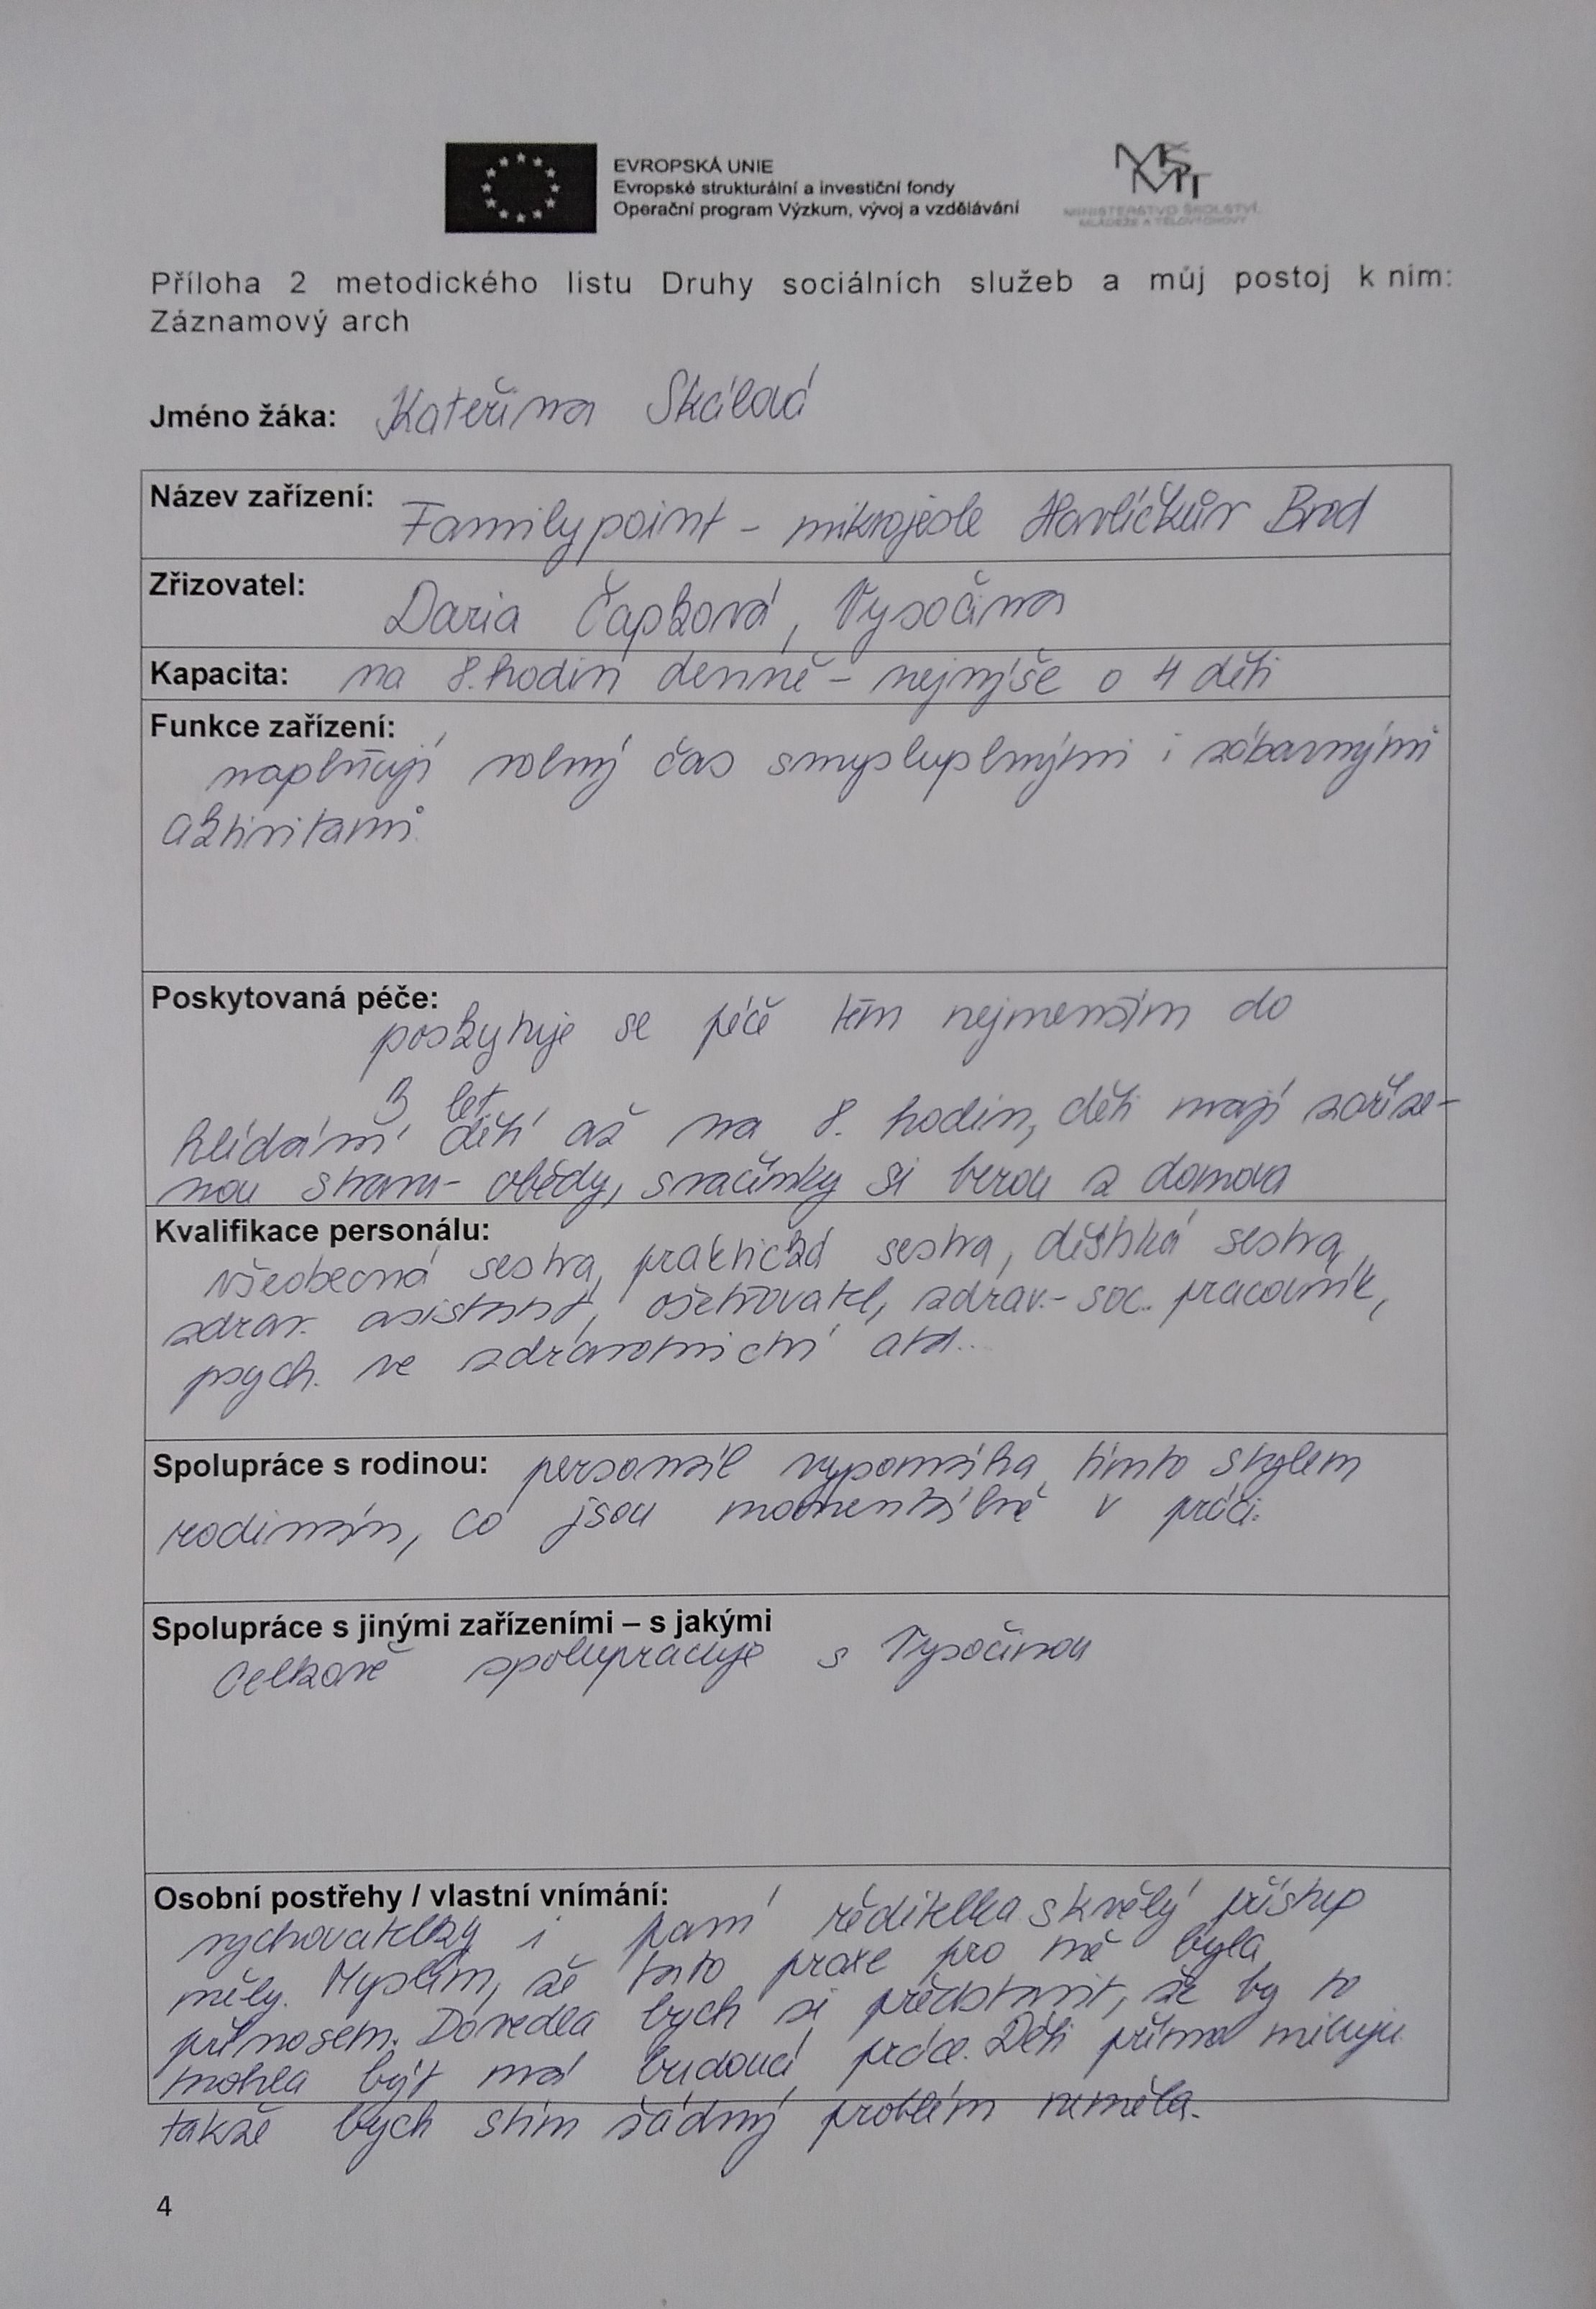 EVROPSKÁ UNIE
Evropské strukturální a investiční fondy
Operační program Výzkum, vývoj a vzdělávání
MINISTERSTVO ŠKOLSTVÍ,
MLÁDEŽE A TĚLOVÝCHOVY
Příloha 2 metodického listu Druhy sociálních služeb a můj postoj k nim:
Záznamový arch
Jméno žáka: Kateřina Skálová
Název zařízení: Familypoint - mikrojesle Havlíčkův Brod
Zřizovatel: Daria Čapková, Vysočina
Kapacita: na 8. hodin denně - nejvýše o 4 děti
Funkce zařízení:
naplňují volný čas smysluplnými i zábavnými
aktivitami
Poskytovaná péče:
poskytuje se péče těm nejmenším do
3 let
hlídání dětí až na 8. hodin, děti mají zaříze-
nou stravu - obědy, svačinky si berou z domova
Kvalifikace personálu:
všeobecná sestra, praktická sestra, dětská sestra,
zdrav. asistent, ošetřovatel, zdrav.- soc. pracovník,
psych. ve zdravotnictví atd..
Spolupráce s rodinou: personál vypomáha tímto stylem
rodinám, co jsou momentálně v práci.
Spolupráce s jinými zařízeními – s jakými
Celkově spolupracuje s Vysočinou
Osobní postřehy / vlastní vnímání:
vychovatelky i paní ředitelka skvělý přístup
měly. Myslím, že tato praxe pro mě byla
přínosem. Dovedla bych si představit, že by to
mohla být má budoucí práce. Děti přímo miluju
takže bych stím žádný problém neměla.
4